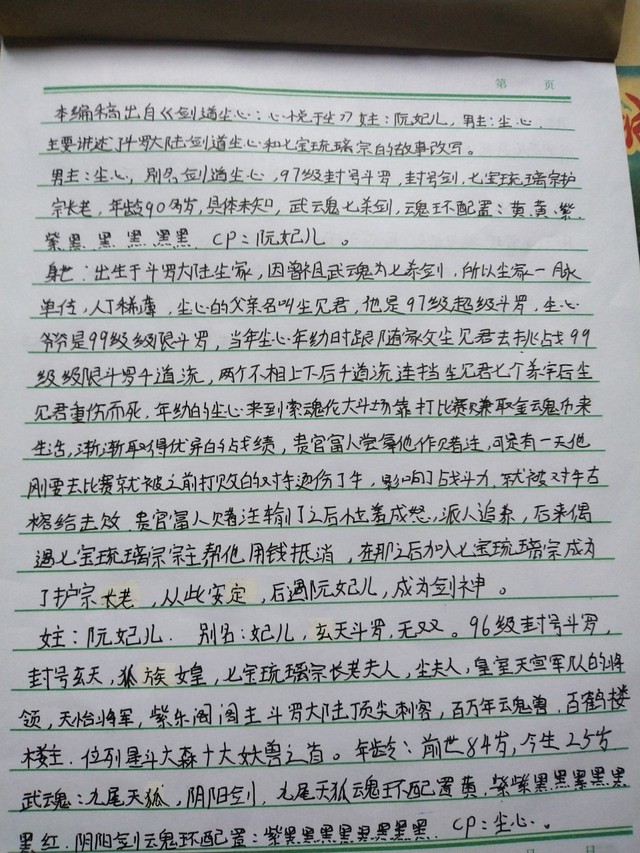 第 页
本编稿出自《剑道尘心：心悦于尘》女主：阮妃儿，男主：尘心.
主要讲述了斗罗大陆剑道尘心和七宝琉璃宗的故事改写。
男主：尘心，别名剑道尘心，97级封号斗罗，封号剑，七宝琉璃宗护
宗长老，年龄90多岁，具体未知，武魂七杀剑，魂环配置：黄.黄.紫.
紫.黑.黑.黑.黑.黑 CP：阮妃儿。
身世：出生于斗罗大陆尘家，因曾祖武魂为七杀剑，所以尘家一脉
单传，人丁稀薄，尘心的父亲名叫尘见君，他是97级超级斗罗，尘心
爷爷是99级级限斗罗，当年尘心年幼时跟随家父尘见君去挑战99
级级限斗罗千道流，两个不相上下后千道流连挡尘见君七个杀字后尘
见君重伤而死，年幼的尘心来到索魂伦大斗场靠打比赛赚取金魂币来
生活，渐渐取得优异的战绩，贵官富人尝拿他作赌注，可是有一天他
刚要去比赛就被之前打败的对手烫伤了手，影响了战斗力，就被对手古
榕给击败，贵官富人赌注输了之后恼羞成怒，派人追杀，后来偶
遇七宝琉璃宗宗主帮他用钱抵消，在那之后加入七宝琉璃宗成为
了护宗长老，从此安定，后遇阮妃儿，成为剑神。
女主：阮妃儿. 别名：妃儿，玄天斗罗，无双。96级封号斗罗，
封号玄天，狐族女皇，七宝琉璃宗长老夫人，尘夫人，皇室天宣军队的将
领，天怡将军，紫乐阁阁主斗罗大陆顶尖刺客，百万年魂兽.百鹤楼
楼主.位列星斗大森十大妖兽之首。年龄：前世84岁，今生25岁
武魂：九尾天狐，阴阳剑.九尾天狐魂环配置黄.紫紫黑黑黑黑黑
黑红.阴阳剑魂环配置：紫黑黑黑黑黑黑黑黑. CP：尘心.。